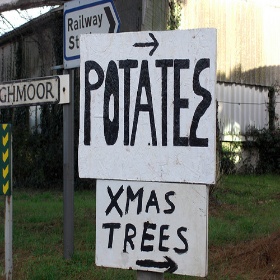 Railway
GHMOOR
POTATES
XMAS
TREES